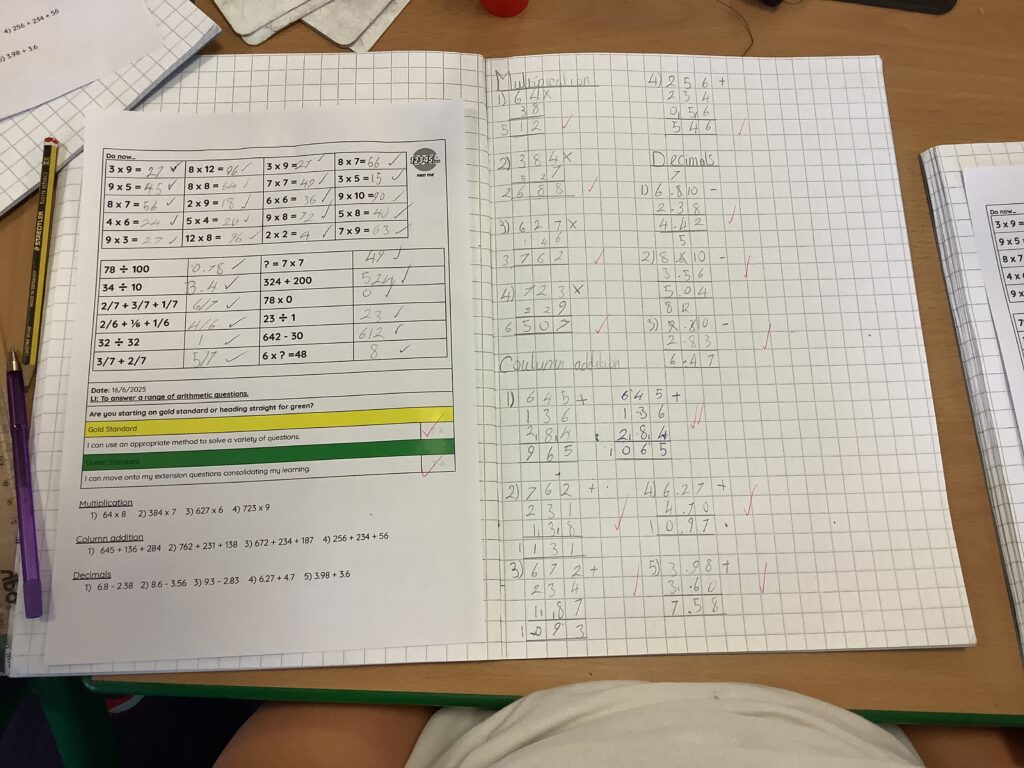 4) 256 + 234 + 56
5) 3.98 + 3.6
Do now...
3 x 9 = 27 ✓ 8 x 12 = 96 ✓ 3 x 9 = 27 ✓ 8 x 7= 56 ✓
9 x 5 = 45 ✓ 8 x 8 = 64 ✓ 7 x 7 = 49 ✓ 3 x 5 = 15 ✓
8 x 7 = 56 ✓ 2 x 9 = 18 ✓ 6 x 6 = 36 ✓ 9 x 10 = 90 ✓
4 x 6 = 24 ✓ 5 x 4 = 20 ✓ 9 x 8 = 72 ✓ 5 x 8 = 40 ✓
9 x 3 = 27 ✓ 12 x 8 = 96 ✓ 2 x 2 = 4 ✓ 7 x 9 = 63 ✓
12345
FIRST FIVE
78 ÷ 100 0.78 ✓ ? = 7 x 7 49 ✓
34 ÷ 10 3.4 ✓ 324 + 200 524 ✓
2/7 + 3/7 + 1/7 6/7 ✓ 78 x 0 0 ✓
2/6 + ⅙ + 1/6 4/6 ✓ 23 ÷ 1 23 ✓
32 ÷ 32 1 ✓ 642 - 30 612 ✓
3/7 + 2/7 5/7 ✓ 6 x ? =48 8 ✓
Date: 16/6/2025
LI: To answer a range of arithmetic questions.
Are you starting on gold standard or heading straight for green?
Gold Standard
I can use an appropriate method to solve a variety of questions.
Green Standard
I can move onto my extension questions consolidating my learning.
Multiplication
1) 64 x 8 2) 384 x 7 3) 627 x 6 4) 723 x 9
Column addition
1) 645 + 136 + 284 2) 762 + 231 + 138 3) 672 + 234 + 187 4) 256 + 234 + 56
Decimals
1) 6.8 - 2.38 2) 8.6 - 3.56 3) 9.3 - 2.83 4) 6.27 + 4.7 5) 3.98 + 3.6
1) 6 4 x
3 8
5 1 2 ✓
2) 3 8 4 x
5 2 7
2 6 8 8 ✓
3) 6 2 7 x
1 4 6
3 7 6 2 ✓
4) 7 2 3 x
2 2 9
6 5 0 7 ✓
addition
1) 6 4 5 +
1 3 6
2 8 4
9 6 5
6 4 5 +
1 3 6
2 8 4
1 0 6 5
2) 7 6 2 +
2 3 1
1 3 8
1 1 3 1
3) 6 7 2 +
2 3 4
1 8 7
1 0 9 3
4) 2 5 6 +
2 3 4
0 5 6
5 4 6 ✓
Decimals
7
1) 6 . 8 10 -
2 . 3 8
4 . 4 2
5
2) 8 . 6 10 -
3 . 5 6
5 . 0 4
8 12
3) 9 . 3 10 -
2 . 8 3
6 . 4 7
4) 6 . 2 7 +
4 . 7 0
1 0 . 9 7
5) 3 . 9 8 +
3 . 6 0
7 . 5 8
STAEDTLER
Do now...
3 x 9 =
9 x 5
8 x 7
4 x 6
9 x